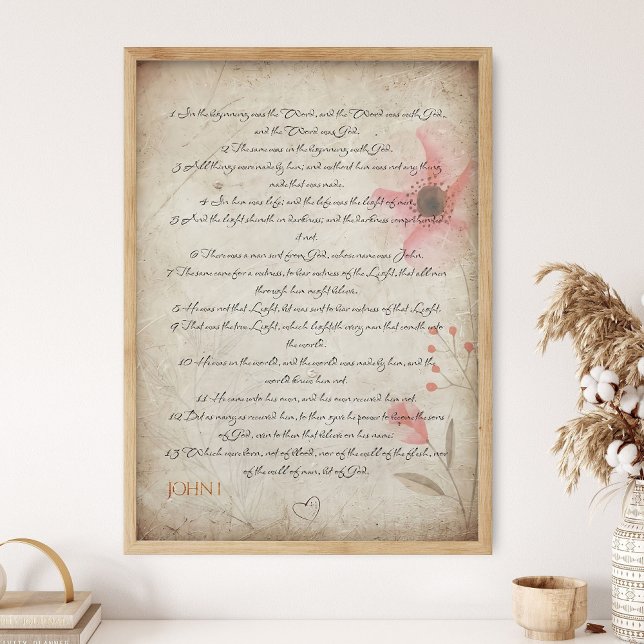 1 In the beginning was the Word, and the Word was with God,
and the Word was God.
2 The same was in the beginning with God.
3 All things were made by him; and without him was not any thing
made that was made.
4 In him was life; and the life was the light of men.
5 And the light shineth in darkness; and the darkness comprehended
it not.
6 There was a man sent from God, whose name was John.
7 The same came for a witness, to bear witness of the Light, that all men
through him might believe.
8 He was not that Light, but was sent to bear witness of that Light.
9 That was the true Light, which lighteth every man that cometh into
the world.
10 He was in the world, and the world was made by him, and the
world knew him not.
11 He came unto his own, and his own received him not.
12 But as many as received him, to them gave he power to become the sons
of God, even to them that believe on his name:
13 Which were born, not of blood, nor of the will of the flesh, nor
of the will of man, but of God.
JOHN 1
PLANNER